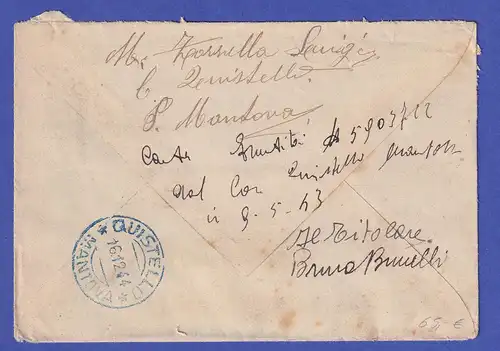 M. Zorzella Luigi
C. Quistello.
P. Mantova
Carta Identità N 5903712
dal Com Quistello Mantova
il 9-5-43
Il Titolare.
Bruno Brunelli
* QUISTELLO *
16.12.44
MANTOVA
65,- €